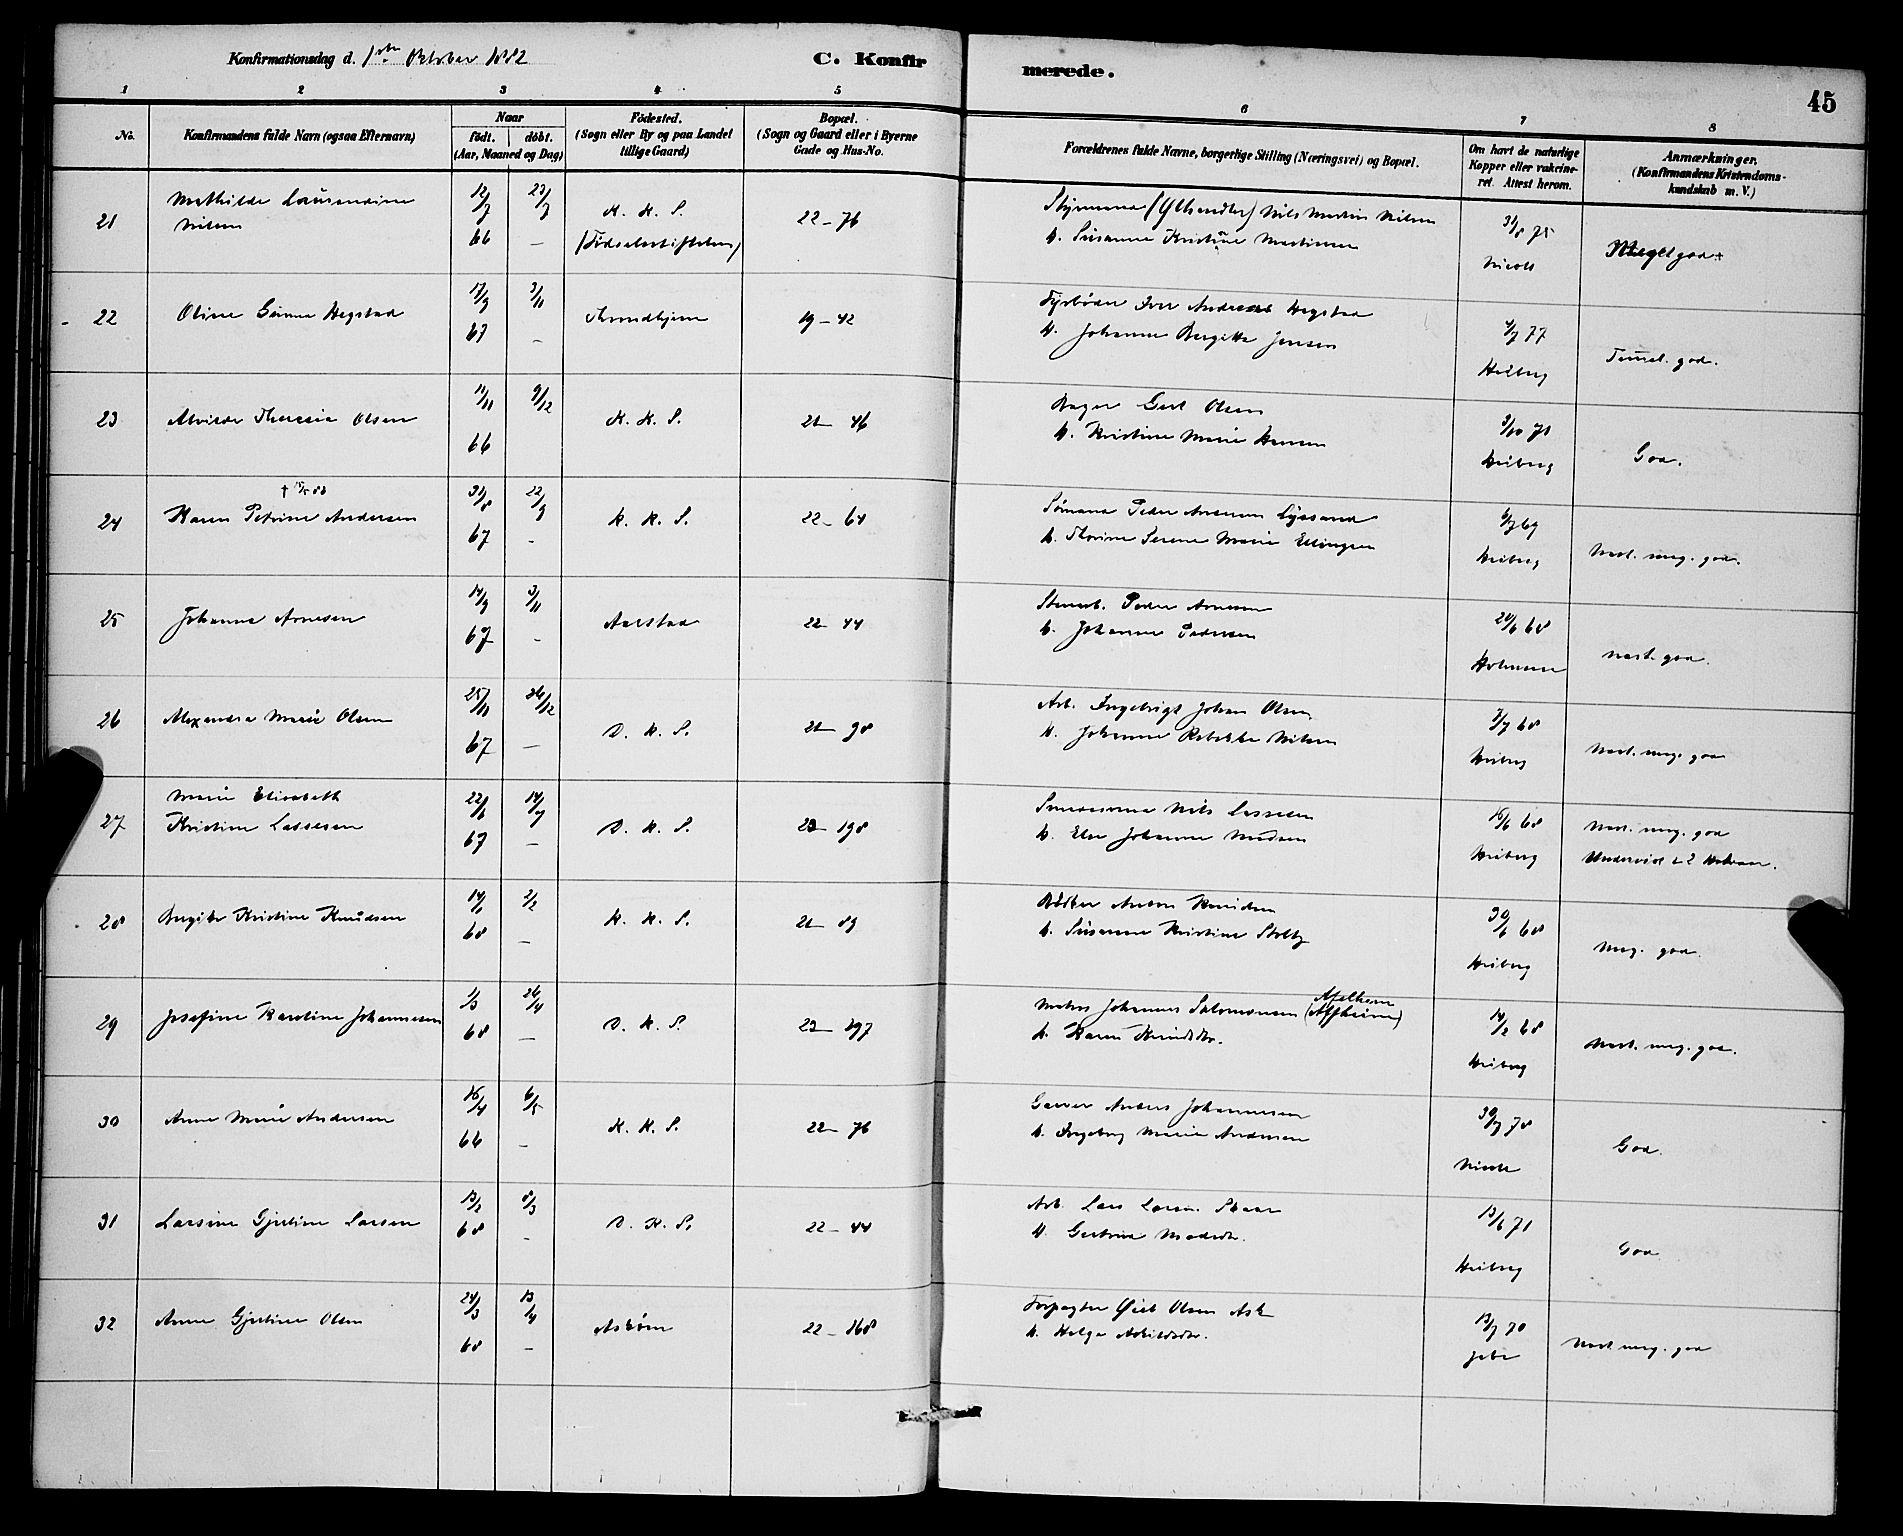 Konfirmationsdag d. 1ste Oktober 1882
C. Konfirmerede.
45
1 2 3 4 5 6 7 8
No.
Konfirmandens fulde Navn (ogsaa Efternavn)
Naar
födt. döbt.
(Aar, Maaned og Dag)
Födested.
(Sogn eller By og paa Landet
tillige Gaard)
Bopæl.
(Sogn og Gaard eller i Byerne
Gade og Hus-No.
Forældrenes fulde Navne, borgerlige Stilling (Næringsvei) og Bopæl.
Om havt de naturlige
Kopper eller vakcine-
ret. Attest herom.
Anmærkninger.
(Konfirmandens Kristendoms-
kundskab m. V.)
21 Mathilde Laurendine Nilsen 12/7 66 23/7 – K. K. S. (Fødselsstiftelsen) 22–76
Styrmand Nils Martin Nilsen
h. Susanne Kristine Martinsen
31/8 75 Nicol Meget god
22 Oline Gunna Hegstad 17/9 67 3/11 – Throndhjem 19–42
Fyrbøder Iver Andreas Hegstad
h. Johanne Bergitte Jensen
4/7 77 Heiberg Temmel. god.
23 Alvilde Theresia Olsen 11/11 66 9/12 K. K. S. 21–46
Bager Gert Olsen
h. Kristine Marie Hansen
3/10 71 Heiberg God.
24 Karen Petrine Andersen 31/8 67 22/9 – K. K. S. 22–64
Sømand Peder Andersen Lyssand
h. Thorine Serene Marie Ellingsen
6/7 69 Heiberg Næst. meg. god.
25 Johanna Arnesen 14/9 67 3/11 – Aarstad 22–44
Peder Arnesen
h. Johanne Pedersen
20/6 68 næst. god.
26 Alexandra Marie Olsen 25/11 67 26/12 – D. K. S. 21–98
Arb. Ingebrigt Johan Olsen
h. Johanne Rebekka Nilsen
3/7 68 Heiberg Næst. meg. god
27 Marie Elisabeth
Kristine Lassesen 22/6 67 14/7 – D. K. S. 23–198
Smedsvend Nils Lassesen
h. Else Johanne Madsen
16/6 68 Heiberg Næst. meg. god
28 Birgitte Kristine Knudsen 14/1 68 2/2 – K. K. S. 21–89
Bødker Anton Knudsen
h. Susanne Kristine Stoltz
30/6 68 Heiberg Meg. god.
29 Josefine Karoline Johannesen 1/3 68 26/4 – D. K. S. 23–197
Matros Johannes Salomonsen
h. Karen Knudsdtr.
14/2 68 Heiberg Næst. meg. god.
30 Anne Marie Andersen 16/4 66 6/5 – K. K. S. 22–76
Garver Anders Johannesen
h. Ingeborg Marie Andersen
30/7 78 Nicol God.
31 Larsine Gjertine Larsen 13/2 68 8/3 – D. K. S. 22–44
Arb. Lars Larsen Skaar
h. Gertrud Madsdtr.
13/6 71 Heiberg God
32 Anne Gjertine Olsen 24/3 68 13/4 – Askøen 22–168
Forpagter Olsen Ask
h. Helga
13/7 70 Næst. meg. god